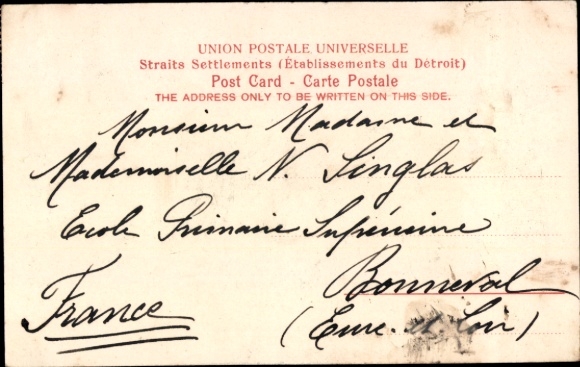 UNION POSTALE UNIVERSELLE
Straits Settlements (Établissements du Détroit)
Post Card - Carte Postale
THE ADDRESS ONLY TO BE WRITTEN ON THIS SIDE.
Monsieur Madame et
Mademoiselle N. Singlas
Ecole Primaire Supérieure
Bonneval
France
(Eure-et-Loir)